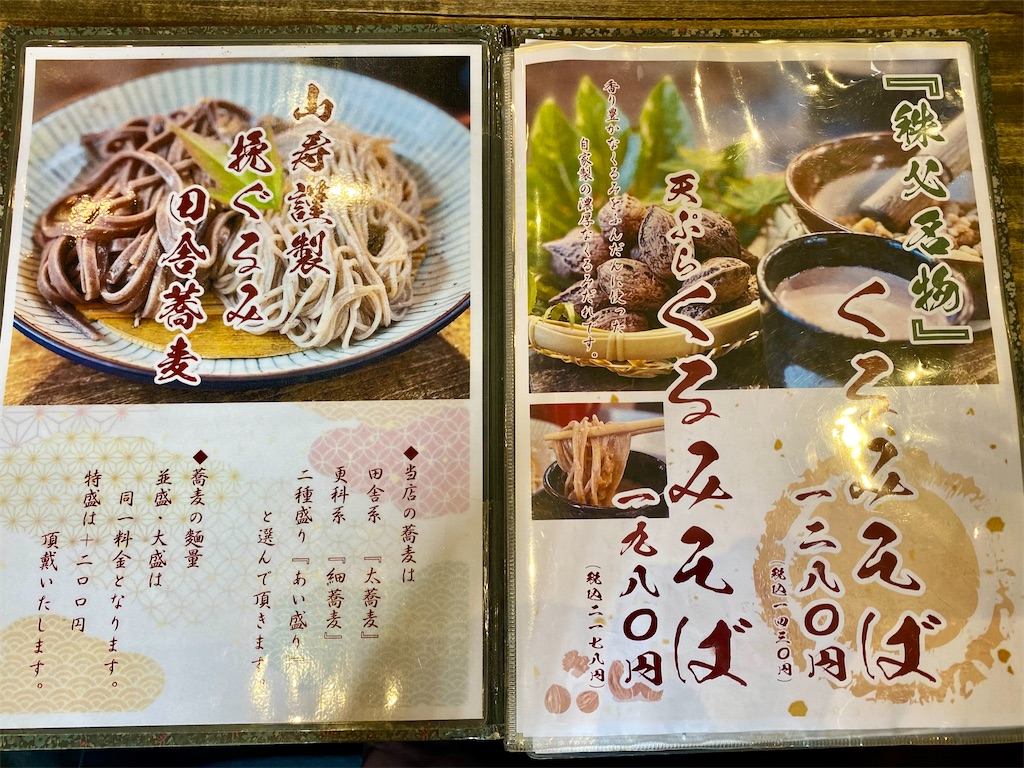 『秩父名物』
くるみそば
一二八〇円
（税込一四三〇円）
天ぷらくるみそば
一九八〇円
（税込二一七八円）
香り豊かなくるみをふんだんに使った
自家製の濃厚なくるみだれです。
山寿謹製
挽ぐるみ
田舎蕎麦
◆当店の蕎麦は
田舎系 『太蕎麦』
更科系 『細蕎麦』
二種盛り『あい盛り』
と選んで頂きます。
◆蕎麦の麺量
並盛・大盛は
同一料金となります。
特盛は＋二〇〇円
頂戴いたします。